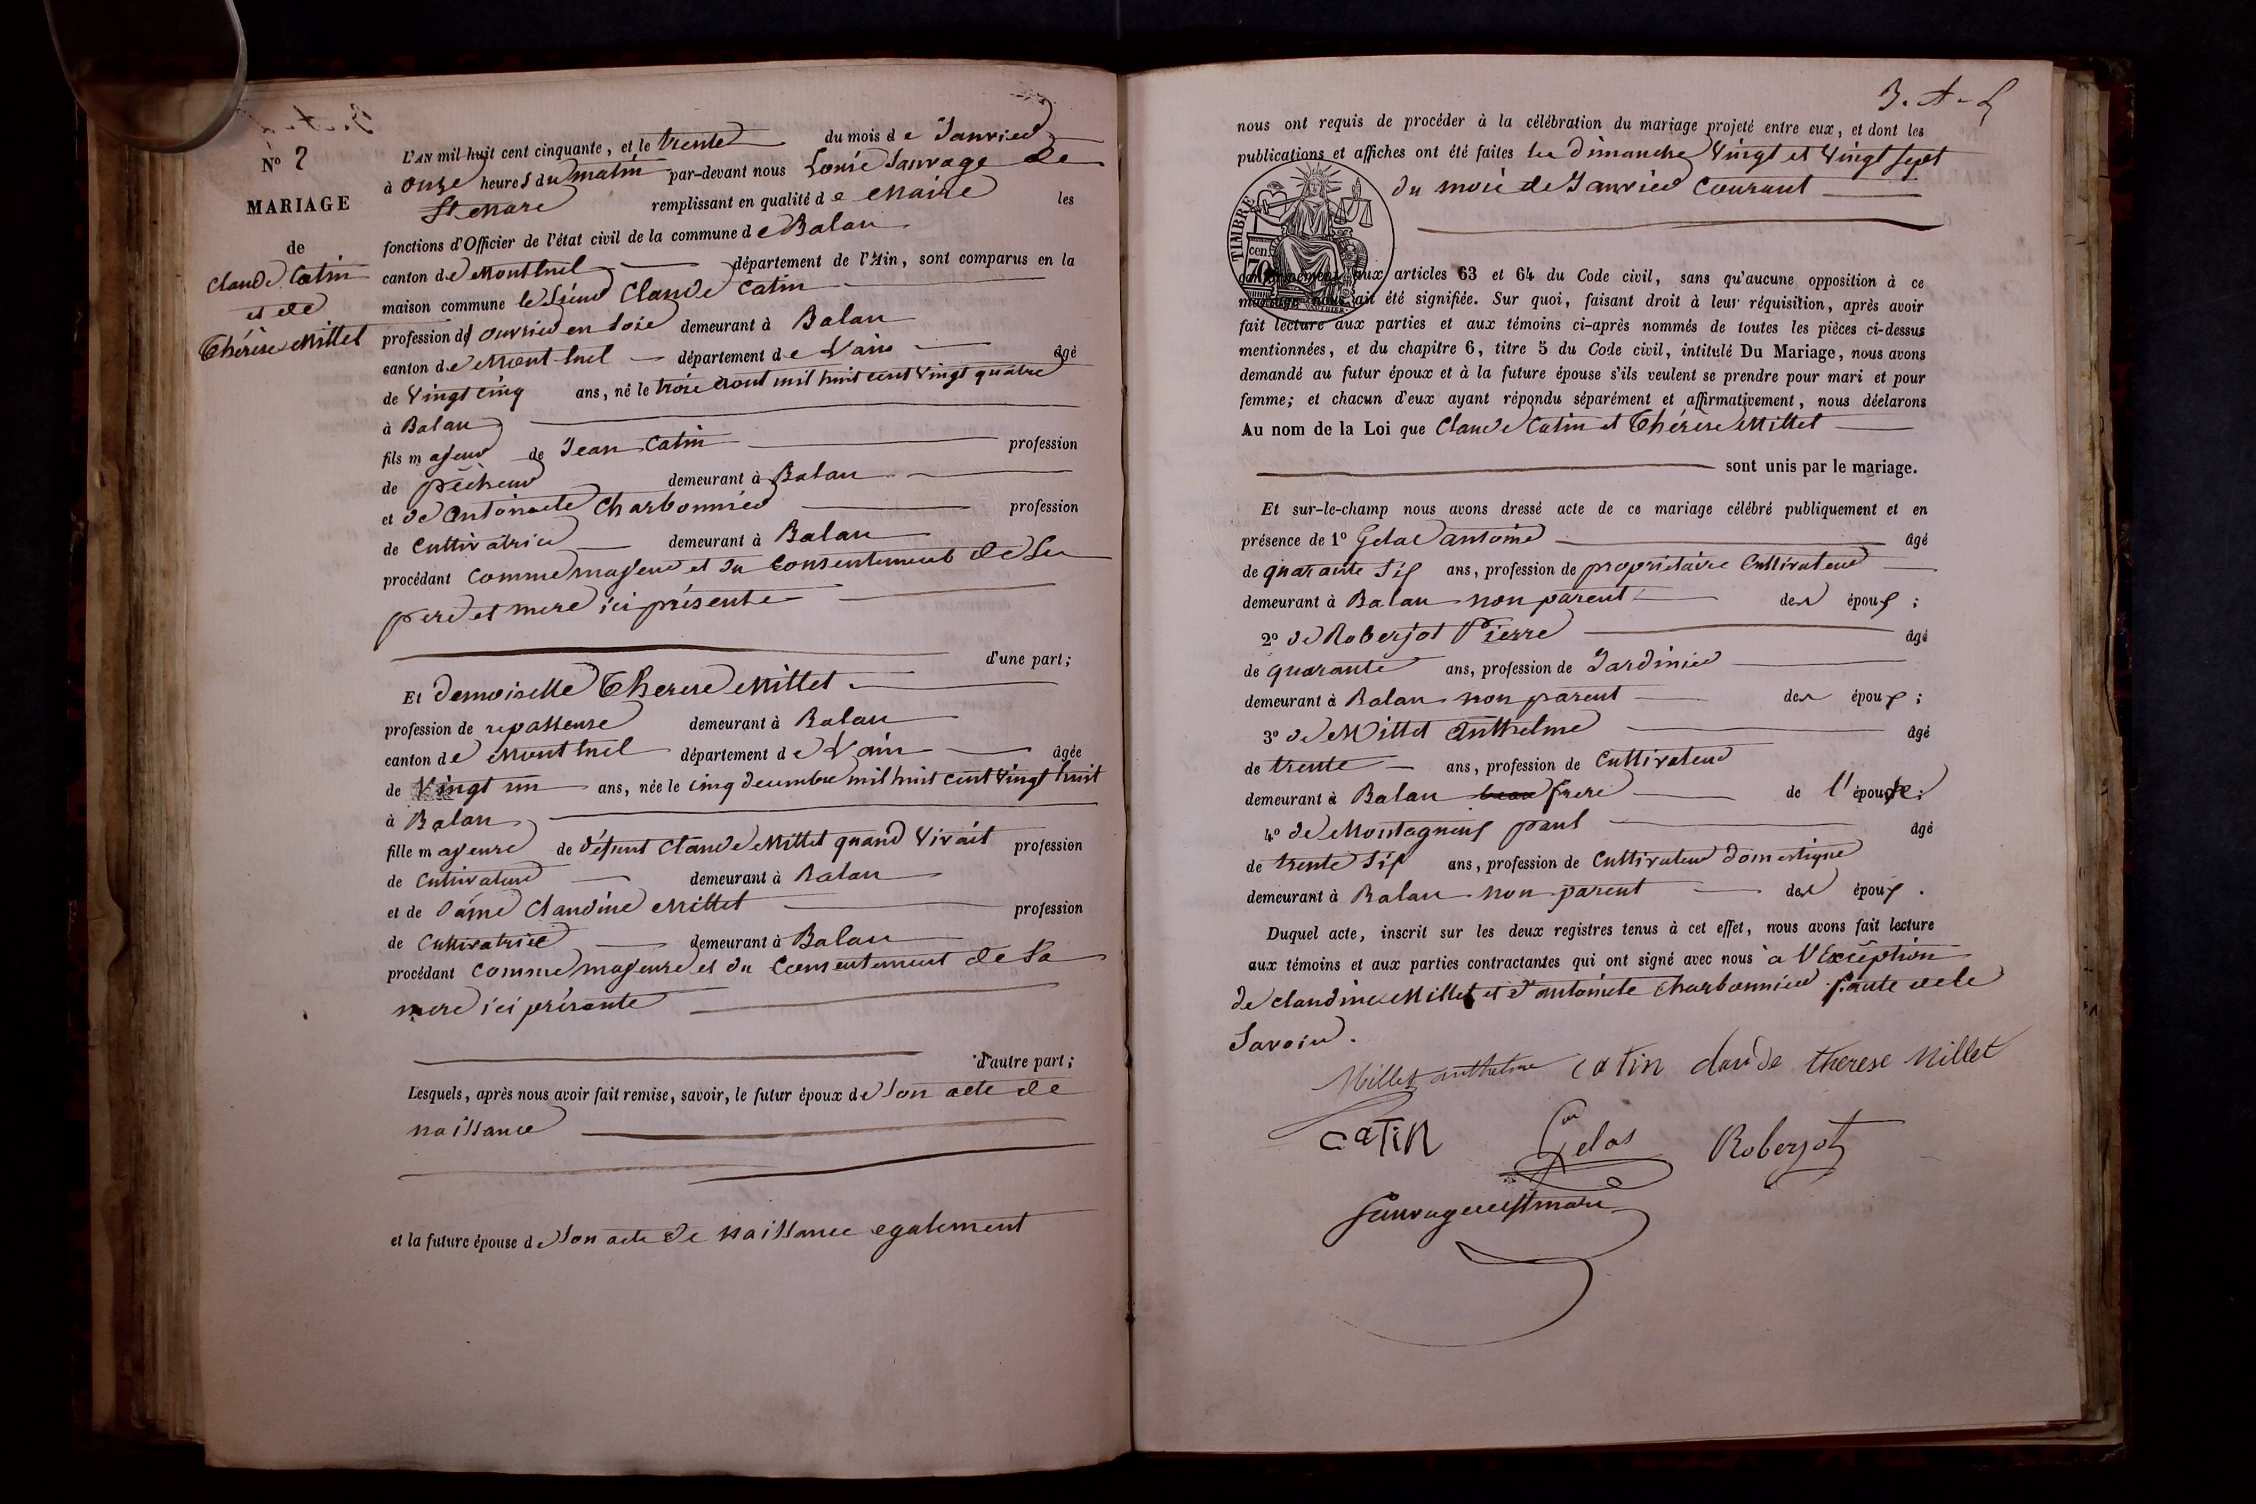 N° 2
MARIAGE
de
Claude Catin
et de
Thérèse Millet
L'AN mil huit cent cinquante, et le trente du mois de Janvier
à onze heures du matin par-devant nous Louis Sauvage de
St Marc remplissant en qualité de Maire les
fonctions d'Officier de l'état civil de la commune de Balan
canton de Montluel département de l'Ain, sont comparus en la
maison commune le Sieur Claude Catin
profession d' ouvrier en soie demeurant à Balan
canton de Mont luel département de L'ain âgé
de Vingt cinq ans, né le trois aout mil huit cent Vingt quatre
à Balan
fils majeur de Jean Catin profession
de pêcheur demeurant à Balan
et de antoinette Charbonnier profession
de Cultivatrice demeurant à Balan
procédant comme majeur et du consentement de ses
pere et mere ici présents
d'une part;
Et demoiselle Therese Millet
profession de repasseuse demeurant à Balan
canton de Mont luel département de L'ain âgée
de Vingt un ans, née le cinq decembre mil huit cent Vingt huit
à Balan
fille majeure de défunt Claude Millet quand Vivait profession
de Cultivateur demeurant à Balan
et de dame Claudine Millet profession
de Cultivatrice demeurant à Balan
procédant comme majeure et du Consentement de sa
mere ici présente
d'autre part;
Lesquels, après nous avoir fait remise, savoir, le futur époux de son acte de
naissance
et la future épouse de son acte de naissance egalement
nous ont requis de procéder à la célébration du mariage projeté entre eux, et dont les
publications et affiches ont été faites les dimanches Vingt et Vingt sept
du mois de Janvier Courant
TIMBRE
70 cen.
conformément aux articles 63 et 64 du Code civil, sans qu'aucune opposition à ce
mariage nous ait été signifiée. Sur quoi, faisant droit à leur réquisition, après avoir
fait lecture aux parties et aux témoins ci-après nommés de toutes les pièces ci-dessus
mentionnées, et du chapitre 6, titre 5 du Code civil, intitulé Du Mariage, nous avons
demandé au futur époux et à la future épouse s'ils veulent se prendre pour mari et pour
femme; et chacun d'eux ayant répondu séparément et affirmativement, nous déclarons
Au nom de la Loi que Claude Catin et Thérèse Millet
sont unis par le mariage.
Et sur-le-champ nous avons dressé acte de ce mariage célébré publiquement et en
présence de 1° Gelas antoine âgé
de quarante six ans, profession de propriétaire Cultivateur
demeurant à Balan non parent des époux;
2° de Roberjot Pierre âgé
de quarante ans, profession de Jardinier
demeurant à Balan non parent des époux;
3° de Millet Anthelme âgé
de trente ans, profession de Cultivateur
demeurant à Balan beau frere de l'épouse;
4° de Montagneux paul âgé
de trente six ans, profession de Cultivateur domestique
demeurant à Balan non parent des époux.
Duquel acte, inscrit sur les deux registres tenus à cet effet, nous avons fait lecture
aux témoins et aux parties contractantes qui ont signé avec nous à l'Exception
de claudine Millet et d'antoinete Charbonnier faute de le
Savoir.
Millet anthelme Catin claude therese Millet
CATIN Gelas Roberjot
Sauvage de St marc